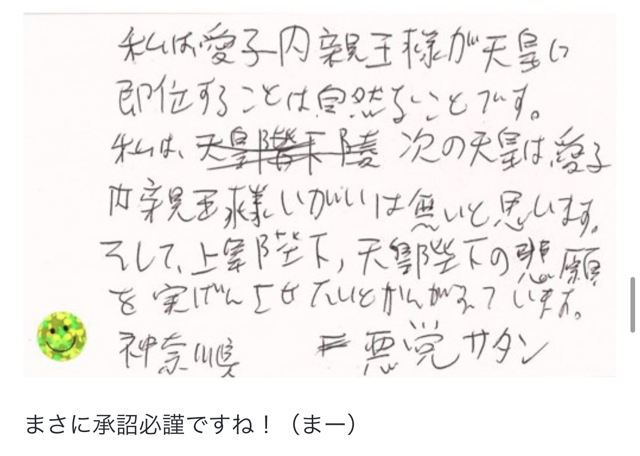 私は愛子内親王様が天皇に
即位することは自然なことです。
私は、天皇陛下 次の天皇は、愛子
内親王様いがいは無いと思います。
そして、上皇陛下,天皇陛下の悲願
を実げんさせたいとかんがえています。
神奈川県 悪党サタン
まさに承詔必謹ですね！（まー）